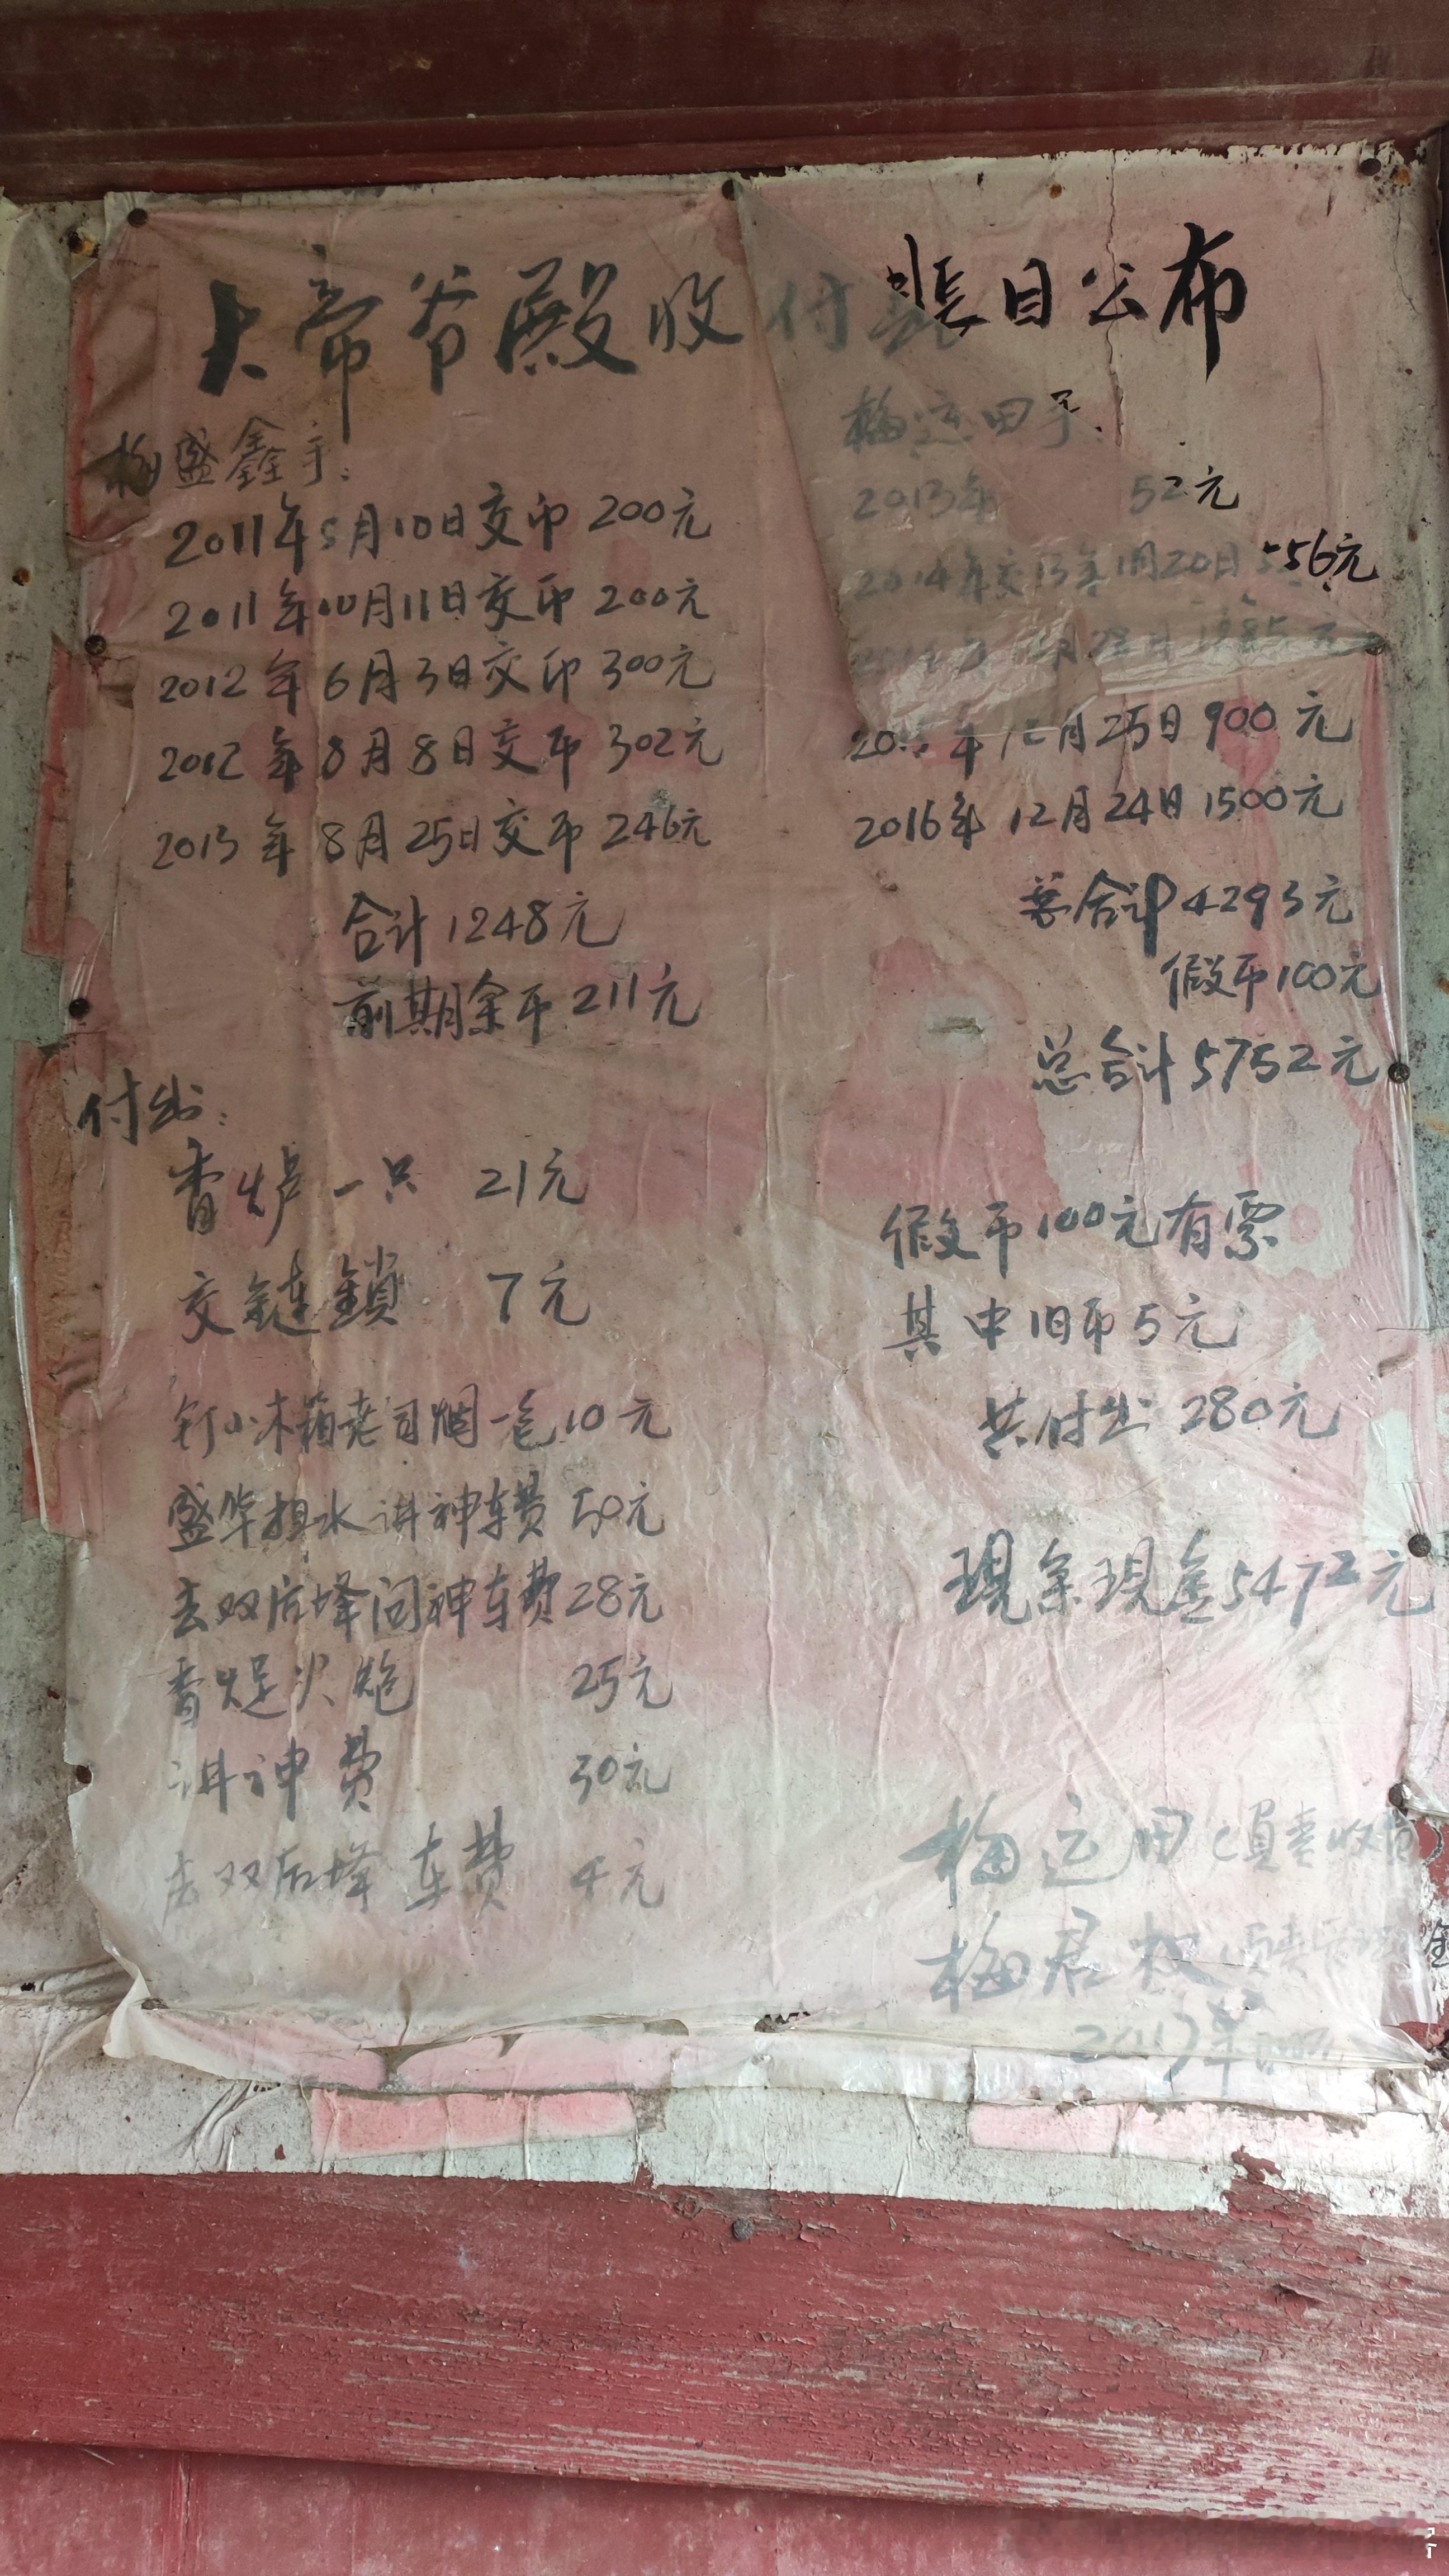 大帝爷殿收付账目公布
梅盛鑫手:
2011年5月10日交币 200元
2011年10月11日交币 200元
2012年6月3日交币 300元
2012年8月8日交币 302元
2013年8月25日交币 246元
合计 1248元
前期余币 211元
付出:
香炉一只 21元
交链鎖 7元
钉小木箱老司烟一包 10元
盛华担水 讲神车费 50元
去双后垟问神车费 28元
香烛火炮 25元
讲神费 30元
去双后垟车费 4元
梅运田手:
2013年 52元
2014年交13年1月20日 556元
月 日 1285元
年12月25日 900元
2016年12月24日 1500元
合计 4293元
假币100元
总合计 5752元
假币100元有票
其中旧币5元
共付出 280元
現余現金5472元
梅运田(員责收
梅君权
2017年